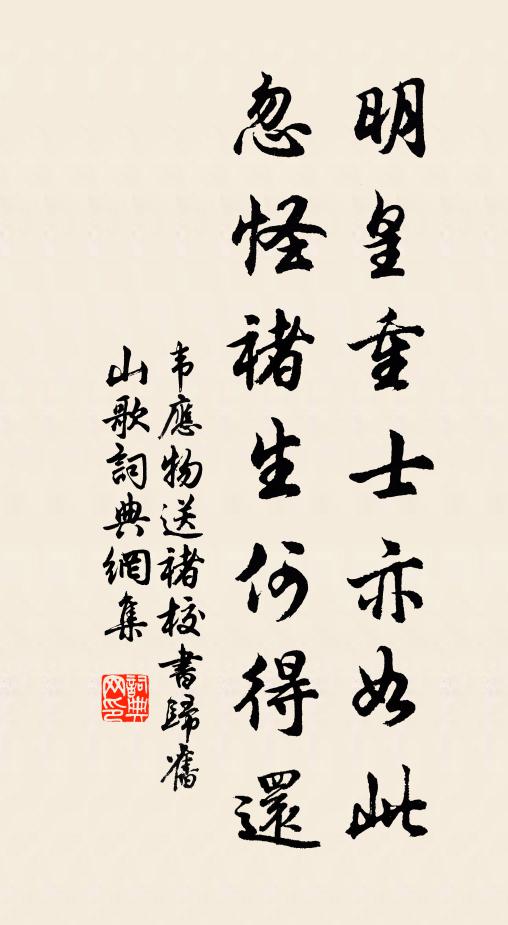 明皇重士亦如此
忽怪褚生何得還
韦應物送褚校書歸舊
山歌詞典網集
詞典网印